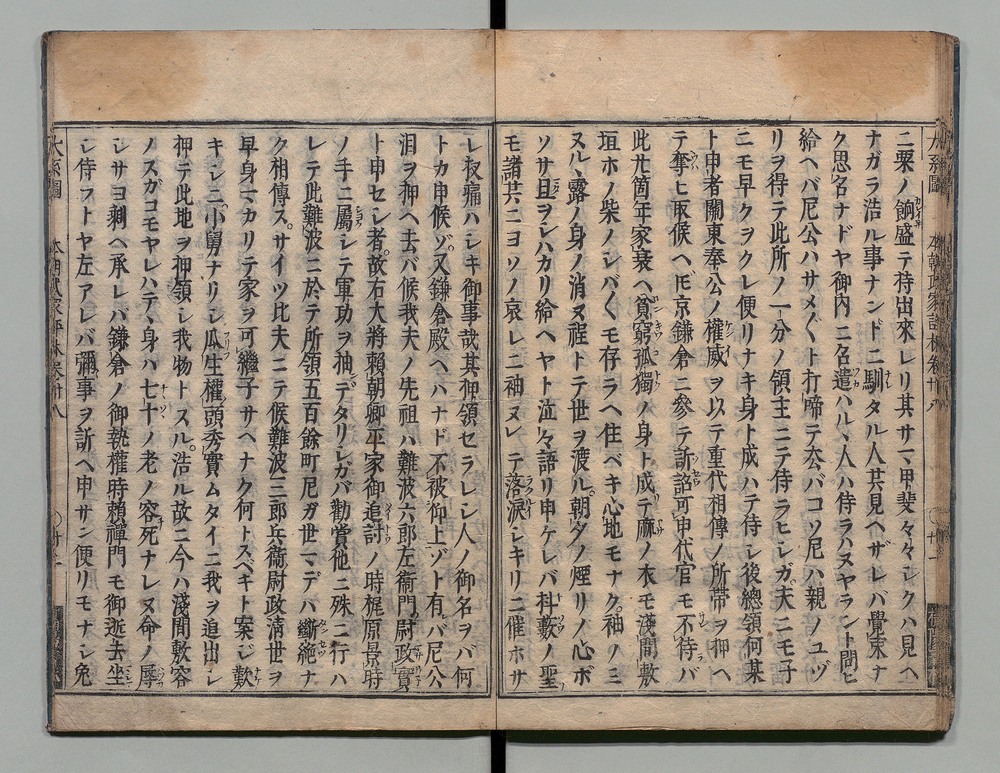 ニ粟ノ餉盛テ持出來レリ其サマ甲斐々々シクハ見ヘ
ナガラ浩ル事ナンドニ馴タル人共見ヘザレバ覺束ナ
ク思名ナドヤ御内ニ名遣ハル、人ハ侍ラハヌヤラント問ヒ
給ヘバ尼公ハサメ〴〵ト打啼テ去バコソ尼ハ親ノユヅ
リヲ得テ此所ノ一分ノ領主ニテ侍ラヒシガ夫ニモ子
ニモ早クヲクレ便リナキ身ト成ハテ侍シ後總領何某
ト申者關東奉公ノ權威ヲ以テ重代相傳ノ所帶ヲ押ヘ
テ奪ヒ取候ヘ𪜈京鎌倉ニ參テ訴詔可申代官モ不侍バ
此廿箇年家衰ヘ貧窮孤獨ノ身ト成テ麻ノ衣モ淺間敷
垣ホノ柴ノシバ〳〵モ存ラヘ住ベキ心地モナク。袖ノミ
ヌル、露ノ身ノ消ヌ程トテ世ヲ渡ル。朝夕ノ煙リノ心ボ
ソサ且ヲシハカリ給ヘヤト泣々語リ申ケレバ抖藪ノ聖
モ諸共ニヨソノ哀レニ袖ヌレテ落淚シキリニ催ホサ
レ扨痛ハシキ御事哉其押領セラレシ人ノ御名ヲバ何
トカ申候ゾ。又鎌倉殿ヘハナド不被仰上ゾト有バ尼公
泪ヲ押ヘ去バ候我夫ノ先祖ハ難波六郎左衞門尉政實
ト申セシ者。故右大將賴朝卿平家御追討ノ時梶原景時
ノ手ニ屬シテ軍功ヲ抽デタリシガバ勸賞他ニ殊ニ行ハ
レテ此難波ニ於テ所領五百餘町尼ガ世マデハ斷絶ナ
ク相傳ス。サイツ比夫ニテ候難波三郎兵衞尉政淸世ヲ
早身マカリテ家ヲ可繼子サヘナク何トスベキト案ジ歎
キシニ小舅ナリシ瓜生權頭秀實ムタイニ我ヲ追出シ
押テ此地ヲ押領シ我物トスル。浩ル故ニ今ハ淺間敷容
ノスガコモヤレハテ、身ハ七十ノ老ノ容死ナレヌ命ノ辱
シサヨ剩ヘ承レバ鎌倉ノ御執權時賴禪門モ御逝去坐
シ侍フトヤ左アレバ彌事ヲ訴ヘ申サン便リモナシ免